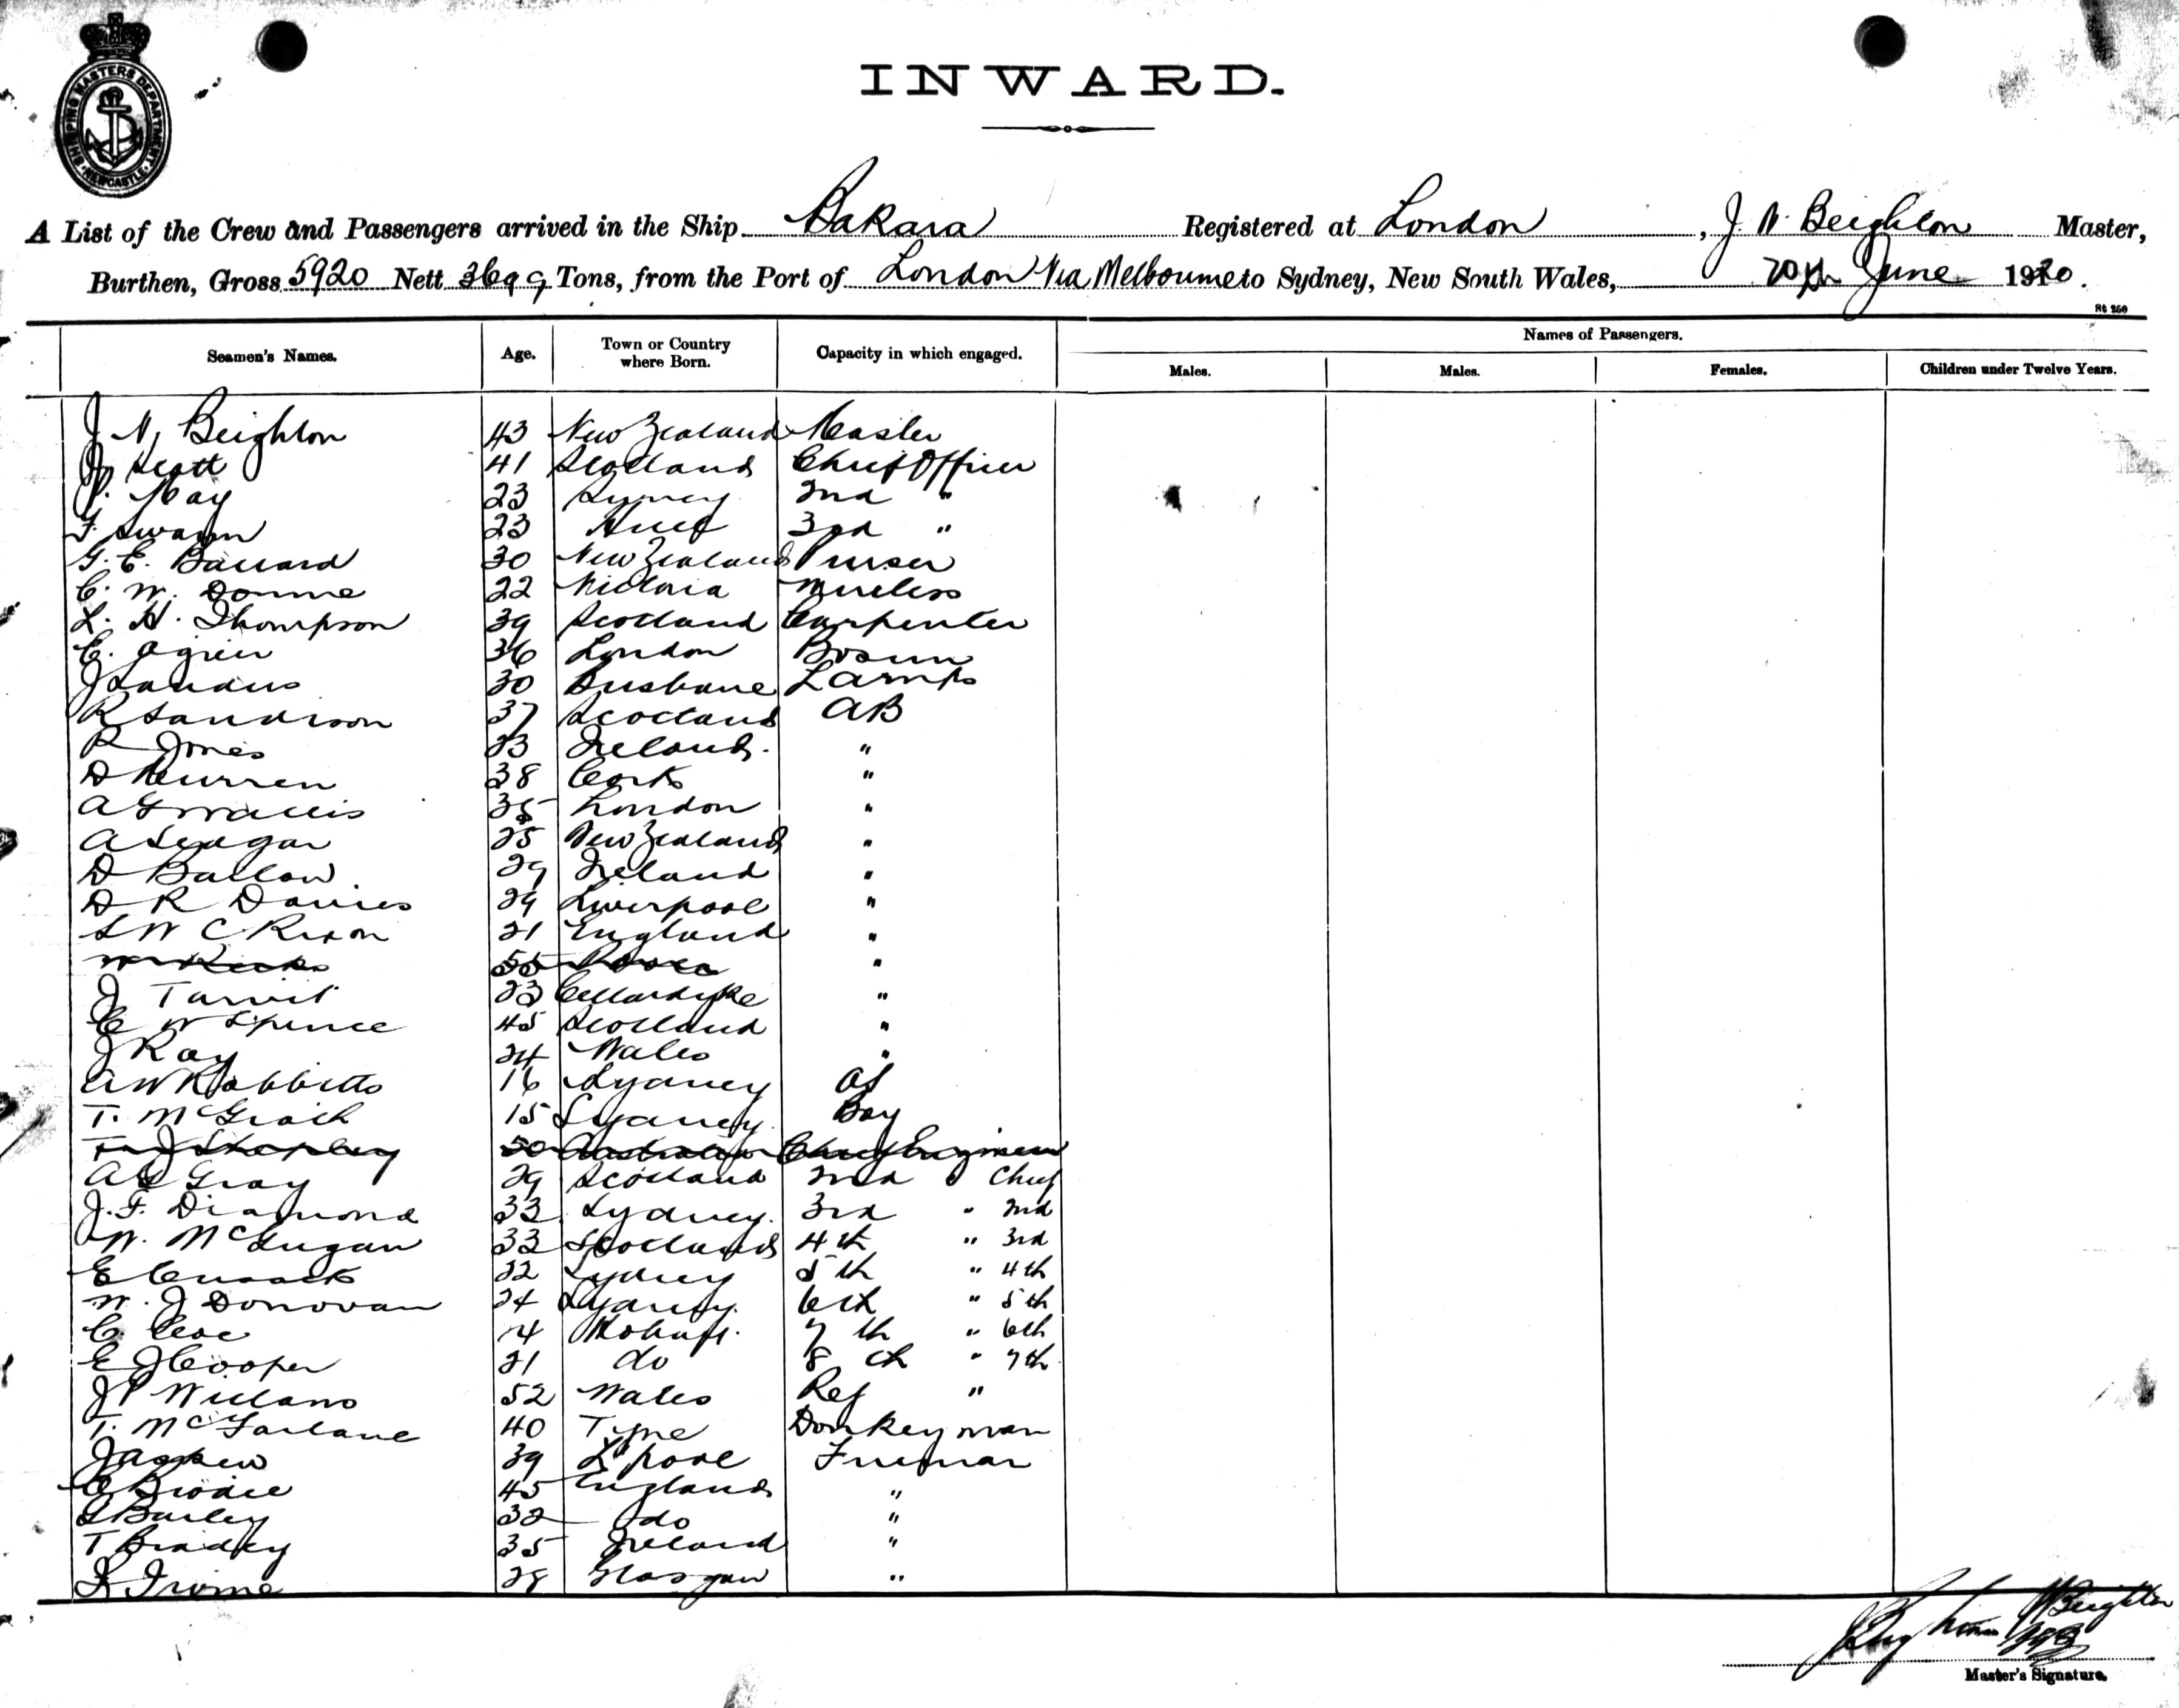 SHIPPING MASTERS DEPARTMENT
NEWCASTLE
INWARD.
A List of the Crew and Passengers arrived in the Ship Bakara Registered at London, J. N. Beighton Master,
Burthen, Gross 5920 Nett 3699 Tons, from the Port of London Via Melbourne to Sydney, New South Wales, 20th June 1920.
St 250
Seamen's Names. Age. Town or Country where Born. Capacity in which engaged. Names of Passengers.
Males. Males. Females. Children under Twelve Years.
J. N. Beighton 43 New Zealand Master
Scott 41 Scotland Chief Officer
May 23 Sydney 2nd "
F. Swann 23 3rd "
G. E. Ballard 30 New Zealand Purser
C. W. Donne 22 Victoria Wireless
L. H. Thompson 39 Scotland Carpenter
C. Agius 36 London Bosun
J 30 Brisbane Lamps
R Sanderson 37 Scotland AB
R Jones 23 Ireland. "
D Curren 38 Cork "
A G Wallis 35 London "
A Seagar 25 New Zealand "
D Barlow 29 Ireland "
D R Davies 29 Liverpool "
S W C Rixon 21 England "
55 "
J Tarvit 23 Cellardyke "
C W Spence 45 Scotland "
J Ray 24 Wales "
A W Rabbitts 16 Sydney OS
T. McGrath 15 Sydney Boy
T. J. Shepley 50 Australia Chief Engineer
A C Gray 29 Scotland 2nd " Chief
J. F. Diamond 33 Sydney. 3rd " 2nd
W. McLugan 33 Scotland 4th " 3rd
E Cusack 22 Sydney 5th " 4th
W. J Donovan 24 Sydney. 6th " 5th
C. Coe Hobart. 7th " 6th
E J Cooper 21 do 8th " 7th
J P Williams 52 Wales Ref "
T. McFarlane 40 Tyne Donkeyman
J Askew 39 L'pool Fireman
Brodie 45 England "
S Bailey 32 do "
T Bradley 35 Ireland "
Irvine 28 Glasgow "
J N Beighton
Master's Signature.